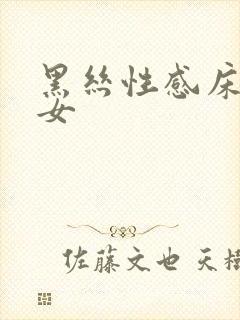 黑丝性感床
女
佐藤文也 天樹